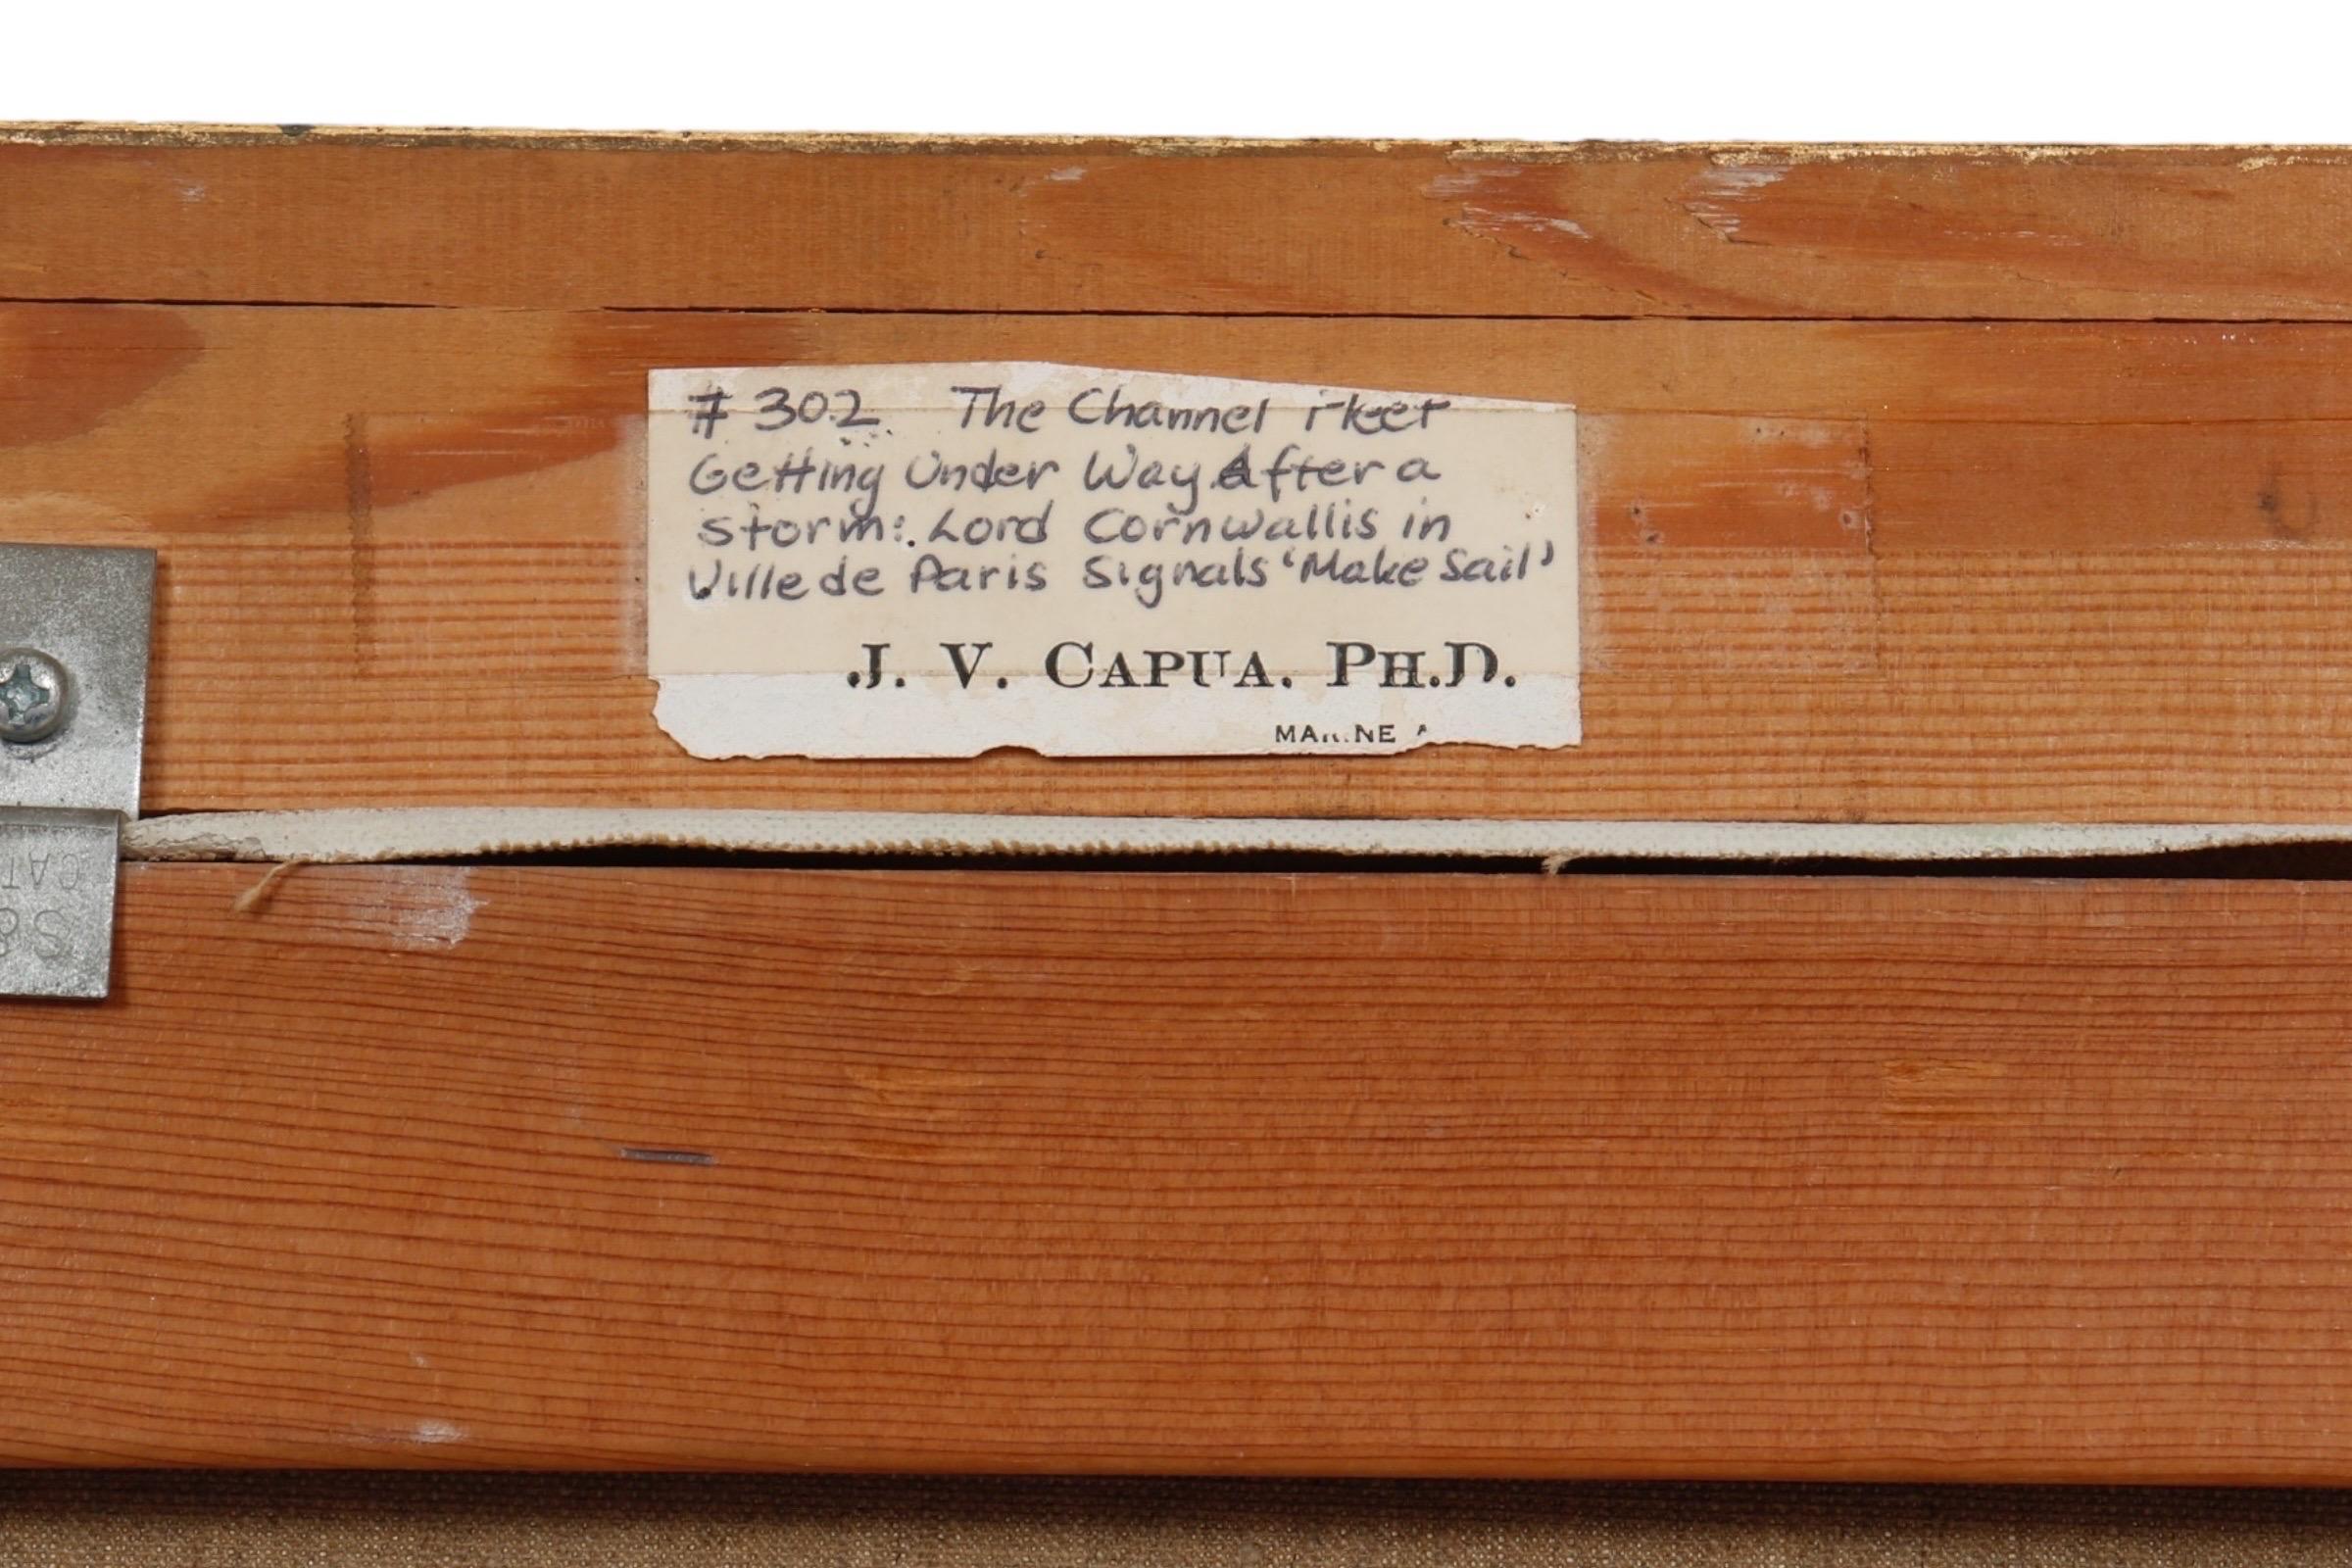 # 302 The Channel Fleet
Getting Under Way After a
Storm: Lord Cornwallis in
Ville de Paris Signals 'Make Sail'
J. V. CAPUA. PH.D.
MARINE
S&
CAT